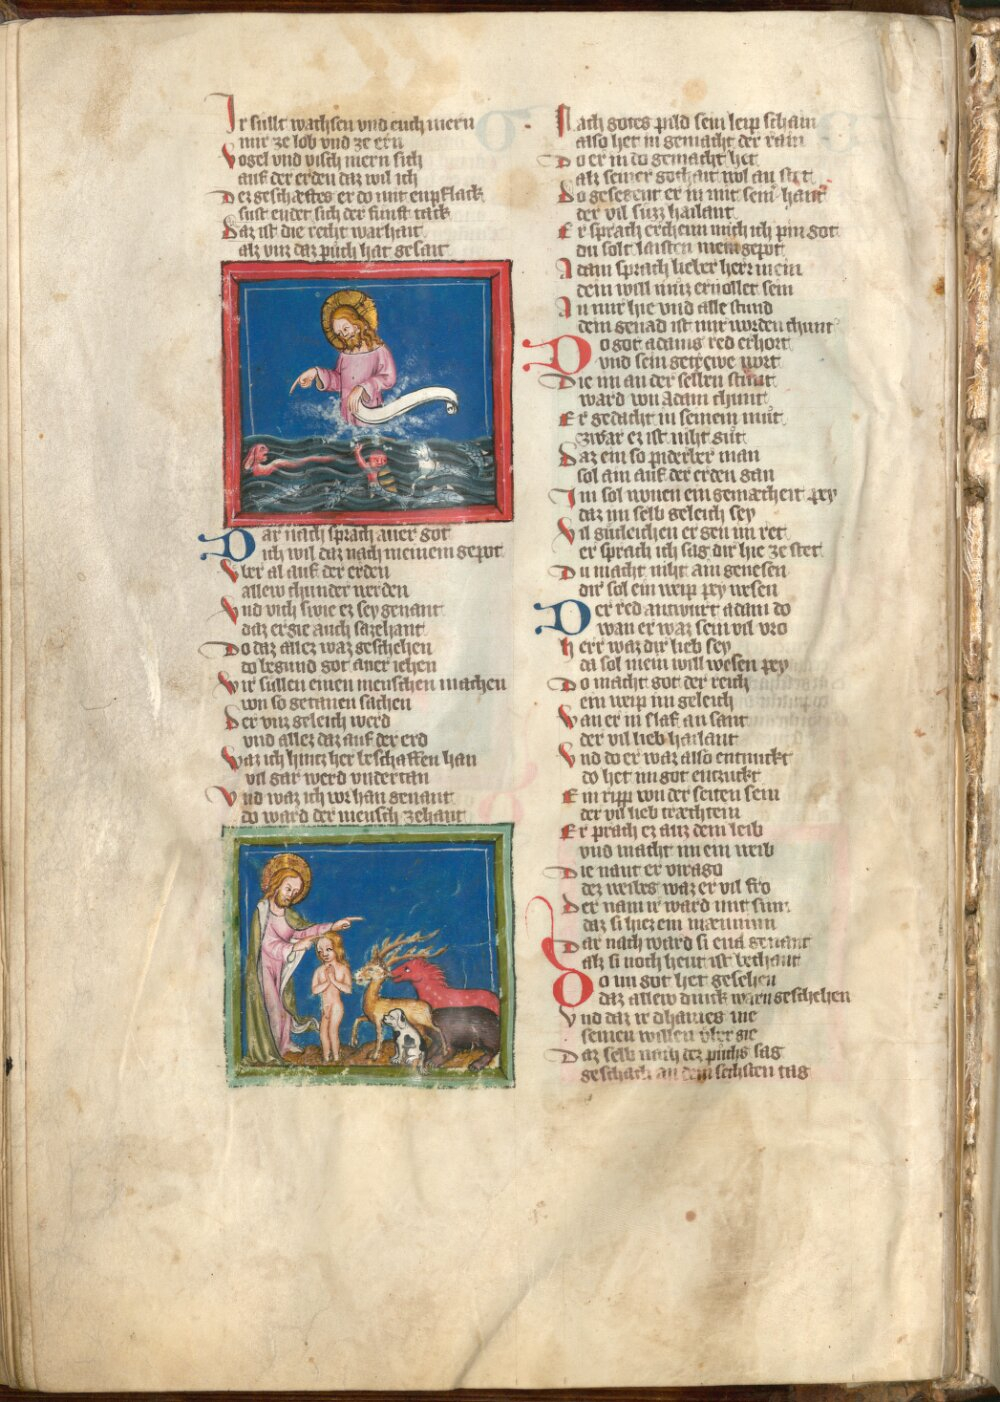 Ir sullt wachsen vnd euch mern
mir ze lob vnd ze ern
Vogel vnd visch mern sich
auf der erden daz wil ich
Dez geschæftes er do mit enpflack
sust endet sich der funft tack
Daz ist die recht warhait
alz vnz daz puch hat gesait
Dar nach sprach auer got
ich wil daz nach meinem gepot
Vber al auf der erden
allew chunder werden
Vnd vich swie ez sey genant
daz er sie auch sazehant
Do daz allez waz geschehen
do begund got auer iehen
Wir sullen einen menschen machen
von so getanen sachen
Der vnz geleich werd
vnd allez daz auf der erd
Waz ich hintz her beschaffen han
vil gar werd vndertan
Vnd waz ich vor han genant
do ward der mensch zehant
Nach gotes pild sein leip scham
also het in gemacht der rain
Do er in do gemacht het
alz seiner gothait wol an stet
Do gesegent er in mit seinr hant
der vil suzz hailant
Er sprach erchenn mich ich pin got
du solt laisten mein gepot
Adam sprach lieber herr mein
dem will muz eruollet sein
An mir hie vnd alle stund
dein genad ist mir worden chunt
Do got adams red erhort
vnd sein getrewe wort
Die im an der selben stunt
ward von Adam chunt
Er gedacht in seinem mut
ezwar ez ist niht gut
Daz ein so piderber man
sol ain auf der erden gan
Im sol wonen ein gemæcheit pey
daz im selb geleich sey
Vil gutleichen er gen im ret
er sprach ich sag dir hie ze stet
Du macht niht ain genesen
dir sol ein weip pey wesen
Der red antwurt adam do
wan er waz sein vil vro
Herr waz dir lieb sey
da sol mein will wesen pey
Do macht got der reich
ein weip im geleich
Wan er in slaf an sant
der vil lieb hailant
Vnd do er waz also entnuckt
do het im got enzuckt
Ein ripp von der seiten sein
der vil lieb træchtein
Er prach ez auz dem leib
vnd macht im ein weib
Die nant er virago
dez weibes waz er vil fro
Der nam ir ward mit sun
daz si hiez ein mæninin
Dar nach ward si eua genant
alz si noch heut ist bechant
Do im got het gesehen
daz allew dinck warn geschehen
Vnd daz ir dhaines nie
seinen willen vber gie
Daz selb nach dez puchs sag
geschach an dem sechsten tag